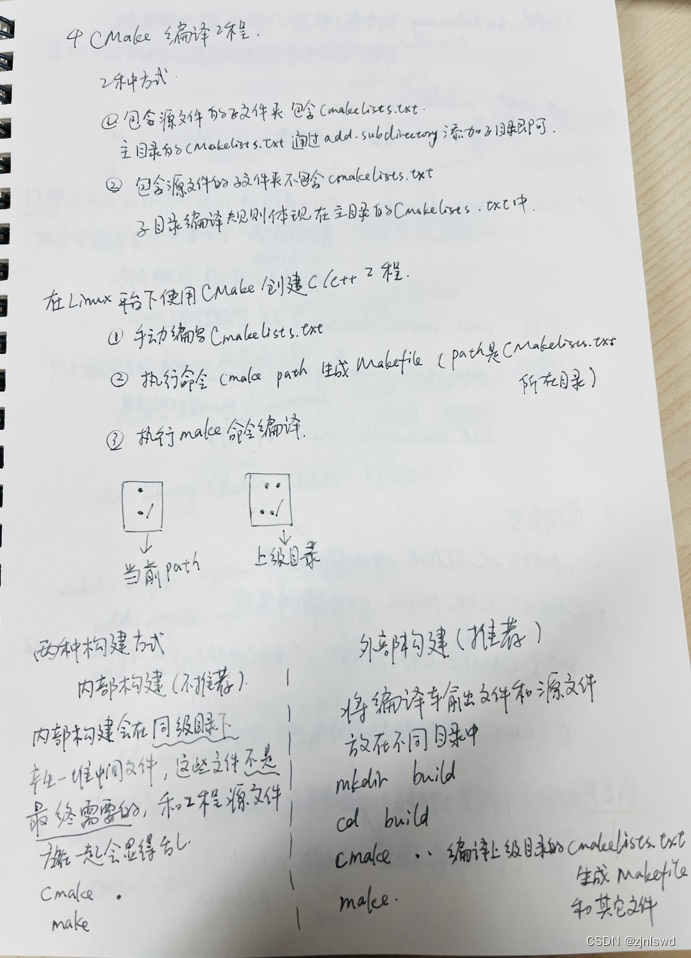 4 CMake 编译工程.
2种方式.
① 包含源文件的子文件夹 包含Cmakelists.txt.
主目录的CMakelists.txt 通过add.subdirectory 添加子目录即可.
② 包含源文件的子文件夹不包含cmakelists.txt
子目录编译规则体现在主目录的Cmakelists.txt中.
在Linux平台下使用CMake创建C/C++工程.
① 手动编写Cmakelists.txt
② 执行命令 cmake path 生成Makefile (path是CMakelists.txt
所在目录)
③ 执行make命令编译.
• ./
•• ./
当前path
上级目录
两种构建方式
内部构建(不推荐).
内部构建会在同级目录下
产生一堆中间文件, 这些文件不是
最终需要的, 和工程源文件
放在一起会显得乱
cmake .
make
外部构建(推荐)
将编译输出文件和源文件
放在不同目录中
mkdir build
cd build
cmake .. 编译上级目录的Cmakelists.txt
生成Makefile
和其它文件
make.
CSDN @zjnlswd